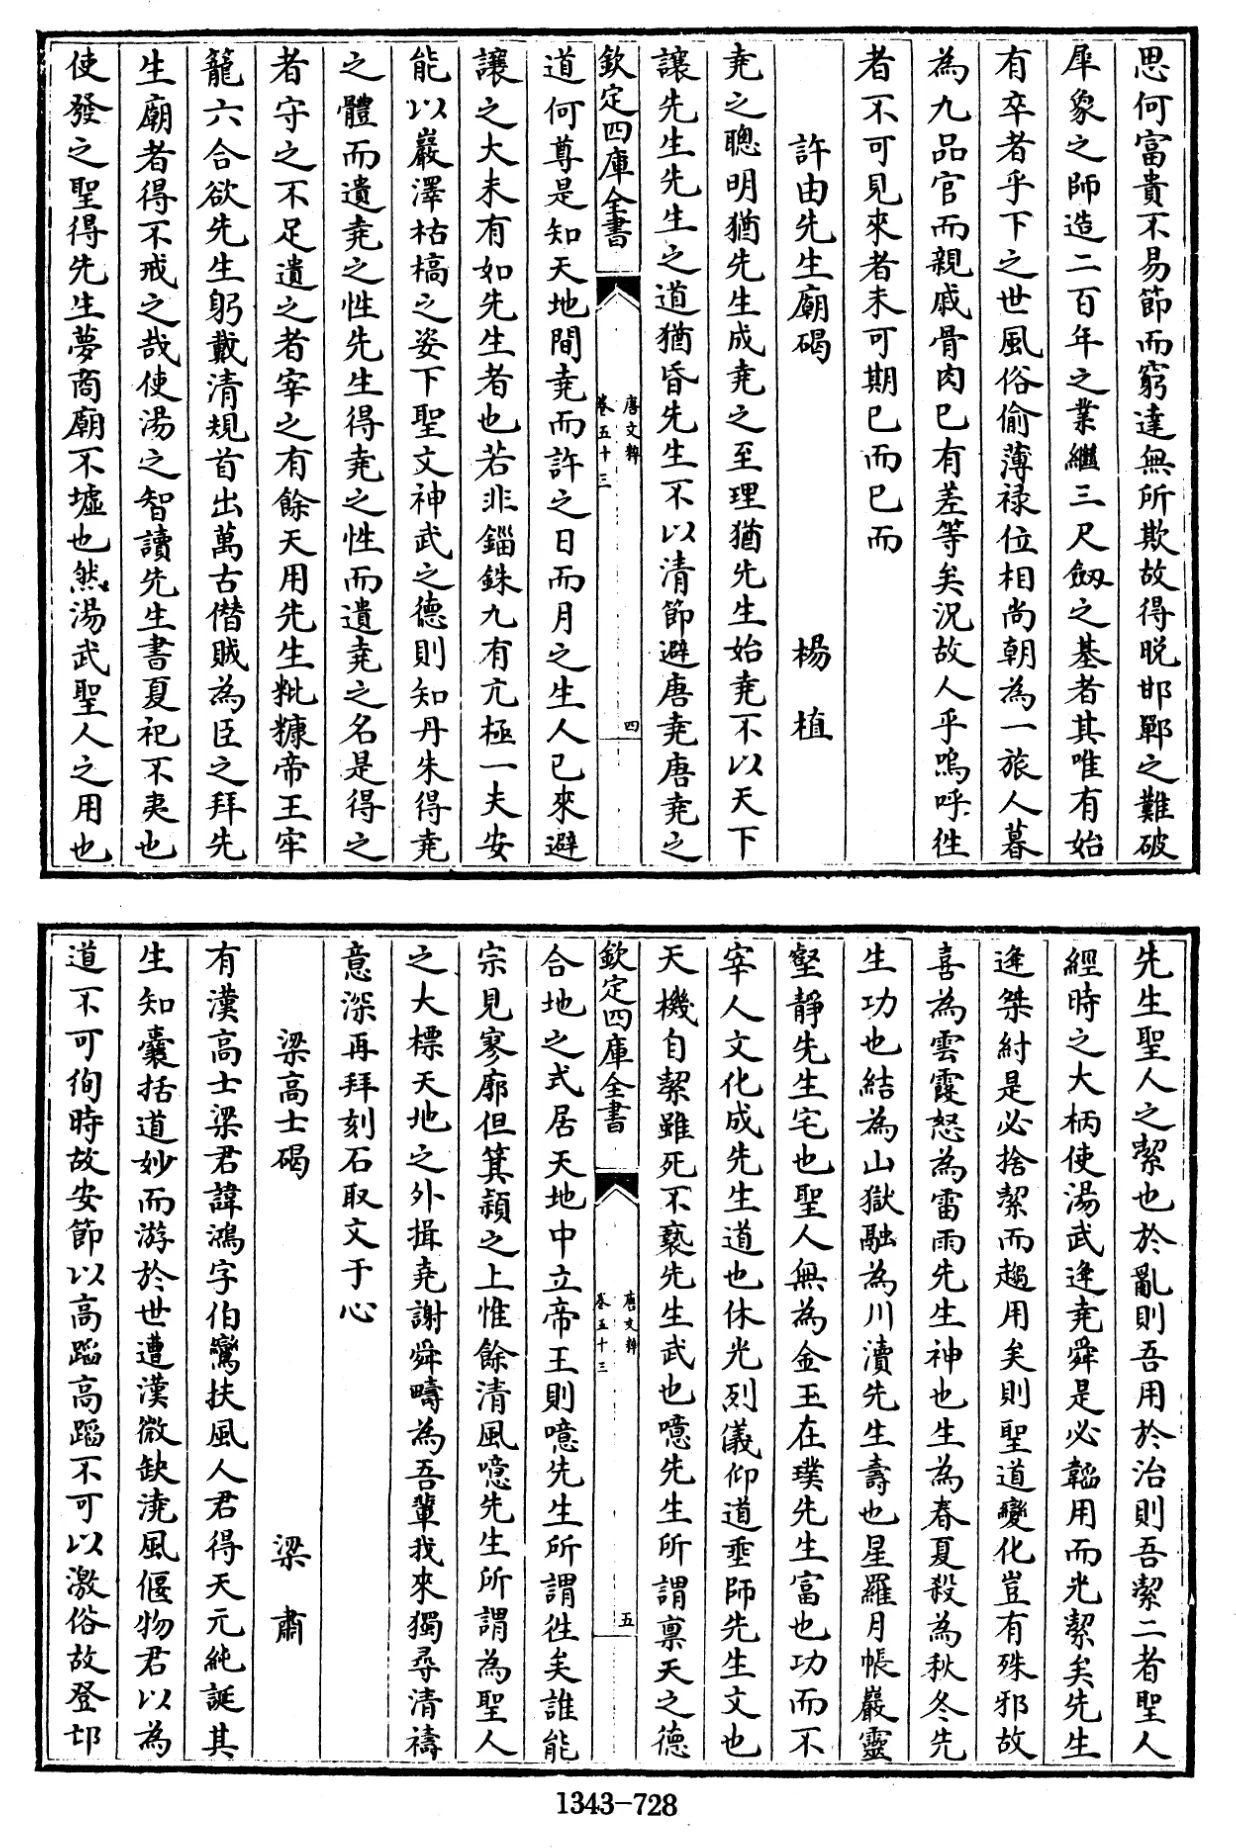 思何富貴不易節而窮達無所欺故得脱邯鄲之難破
犀象之師造二百年之業繼三尺劔之基者其唯有始
有卒者乎下之世風俗偷薄禄位相尚朝為一旅人暮
為九品官而親戚骨肉已有差等矣況故人乎嗚呼徃
者不可見來者未可期已而已而
許由先生廟碣 楊植
堯之聰明猶先生成堯之至理猶先生始堯不以天下
讓先生先生之道猶昏先生不以清節避唐堯唐堯之
欽定四庫全書 唐文粹 卷五十三 四
道何尊是知天地間堯而許之日而月之生人已來避
讓之大未有如先生者也若非錙銖九有亢極一夫安
能以巖澤枯槁之姿下聖文神武之德則知丹朱得堯
之體而遺堯之性先生得堯之性而遺堯之名是得之
者守之不足遺之者宰之有餘天用先生粃糠帝王牢
籠六合欲先生躬戴清規首出萬古僭賊為臣之拜先
生廟者得不戒之哉使湯之智讀先生書夏祀不夷也
使發之聖得先生夢商廟不墟也然湯武聖人之用也
先生聖人之潔也於亂則吾用於治則吾潔二者聖人
經時之大柄使湯武逢堯舜是必韜用而光潔矣先生
逢桀紂是必捨潔而趨用矣則聖道變化豈有殊邪故
喜為雲霞怒為雷雨先生神也生為春夏殺為秋冬先
生功也結為山獄融為川瀆先生壽也星羅月帳巖靈
壑靜先生宅也聖人無為金玉在璞先生富也功而不
宰人文化成先生道也休光列儀仰道垂師先生文也
天機自潔雖死不褻先生武也噫先生所謂禀天之德
欽定四庫全書 唐文粹 卷五十三 五
合地之式居天地中立帝王則噫先生所謂徃矣誰能
宗見寥廓但箕潁之上惟餘清風噫先生所謂為聖人
之大標天地之外揖堯謝舜疇為吾輩我來獨尋清禱
意深再拜刻石取文于心
梁高士碣 梁肅
有漢高士梁君諱鴻字伯鸞扶風人君得天元純誕其
生知囊括道妙而游於世遭漢微缺澆風偃物君以為
道不可徇時故安節以高蹈高蹈不可以激俗故登邙
1343-728